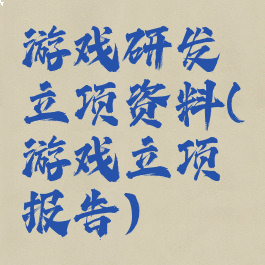 游戏研发
立项资料(
游戏立项
报告)